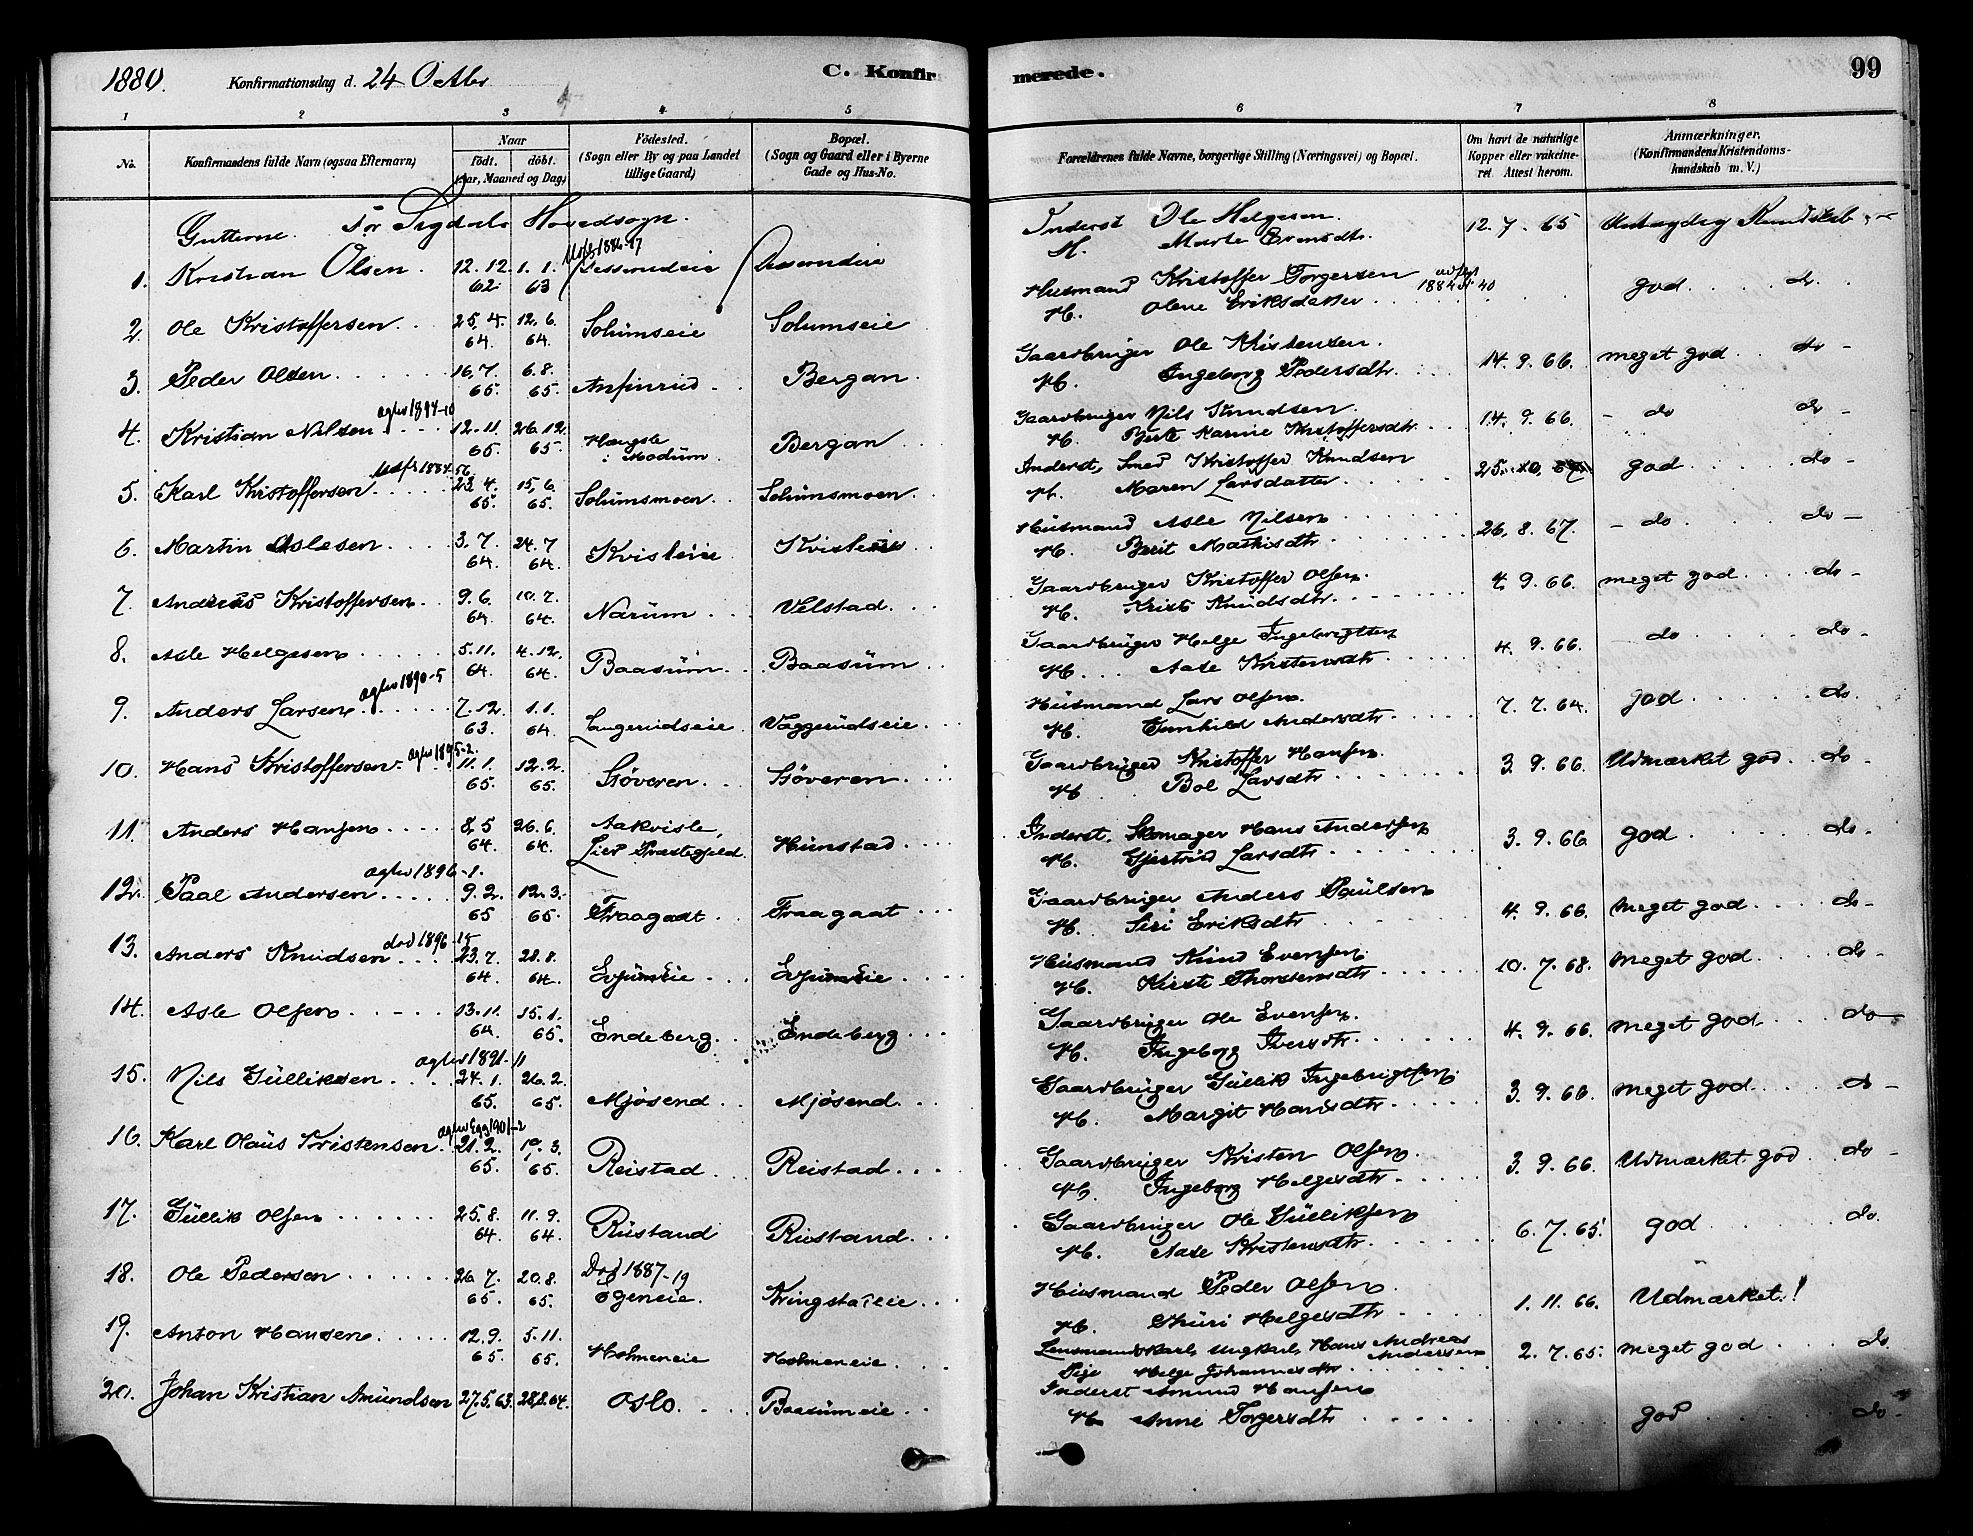 1880. Konfirmationsdag d. 24 Octbr C. Konfirmerede. 99
1 2 3 4 5 6 7 8
No. Konfirmandens fulde Navn (ogsaa Efternavn) Naar födt. döbt. (Aar, Maaned og Dag) Födested. (Sogn eller By og paa Landet tillige Gaard) Bopæl. (Sogn og Gaard eller i Byerne Gade og Hus-No. Forældrenes fulde Navne, borgerlige Stilling (Næringsvei) og Bopæl. Om havt de naturlige Kopper eller vakcineret. Attest herom. Anmærkninger. (Konfirmandens Kristendomskundskab m. V.)
Gutterne for Sigdals Hovedsogn.
1. Kristian Olsen. 12.12. 62 1.1. 63 Inderst Ole Helgesen H. Marte Evensdtr. 12.7.65 Kundskab
2. Ole Kristoffersen 25.4. 64. 12.6. 64. Solumseie Solumseie Husmand Kristoffer Torgersen H. Olene Eriksdatter god do.
3. Peder Olsen 16.7. 65. 6.8. 65. Anfinrud Bergan Gaardbruger Ole Kristensen. H. Ingeborg Pedersdtr. 14.9.66. meget god do
4. Kristian Nilsen 12.11. 65. 26.12. 65. i Modum Bergan Gaardbruger Nils Knudsen. H. Berte Karine Kristoffersdtr. 14.9.66. do do
5. Karl Kristoffersen 23.4. 65. 15.6. 65. Solumsmoen Solumsmoen Inderst, Smed Kristoffer Knudsen H. Maren Larsdatter god do
6. Martin Aslesen 3.7. 64. 24.7 64. Kristeie Kristeie Husmand Asle Nilsen H. Berit Mathisdtr 26.8.67. do do
7. Andreas Kristoffersen 9.6. 64. 10.7. 64. Narum Velstad Gaardbruger Kristoffer Olsen. H. Kirsti Knudsdtr. 4.9.66. meget god do
8. Asle Helgesen 5.11. 64 4.12. 64. Baasum Baasum Gaardbruger Helge Ingebrigtsen H. Aase Kristensdtr. 4.9.66. do do
9. Anders Larsen 7.12. 63. 1.1. 64. Langerudseie Vaggerudseie Husmand Lars Olsen. H. Gunhild Andersdtr. 7.7.64. god do.
10. Hans Kristoffersen 11.1. 65. 12.2. 65. Støveren Støveren Gaardbruger Kristoffer Hansen. H. Boel Larsdtr 3.9.66. Udmærket god do
11. Anders Hansen 8.5 64. 26.6. 64. Aakvisle, Lier Præstegjeld Hunstad Inderst, Skomager Hans Andersen H. Gjertrud Larsdtr 3.9.66. god do
12. Paal Andersen 9.2. 65 12.3. 65. Fraagaat Fraagaat Gaardbruger Anders Paulsen H. Siri Eriksdtr 4.9.66. meget god do
13. Anders Knudsen 23.7. 64 28.8. 64. Evjumeie Evjumeie Husmand Knud Evensen. H. Kirsti Thorstensdtr 10.7.68. meget god do
14. Asle Olsen 13.11. 64. 15.1. 65. Endeberg Endeberg Gaardbruger Ole Evensen. H. Ingeborg Iversdtr. 4.9.66. meget god do
15. Nils Gulliksen 24.1. 65. 26.2. 65. Mjøsend Mjøsend Gaardbruger Gullik Ingebrigtsen. H. Margit Hansdtr 3.9.66. meget god do
16. Karl Olaus Kristensen 21.2. 65. 19.3. 65. Reistad Reistad Gaardbruger Kristen Olsen. H. Ingeborg Helgesdtr. 3.9.66. Udmærket god do
17. Gullik Olsen 25.8. 64. 11.9. 64. Rustand Rustand Gaardbruger Ole Gulliksen H. Aase Kristensdtr. 6.7.65. god do.
18. Ole Pedersen 26.7. 65. 20.8. 65. Død 1887-19 Ogeneie Kringstaeie Husmand Peder Olsen H. Thuri Helgesdtr 1.11.66. Udmærket!
19. Anton Hansen 12.9. 65. 5.11. 65. Holmeneie Holmeneie Lensmandskarl, Ungkarl Hans Andreas Andersen Pige Helge Johannesdtr 2.7.65. meget god do
20. Johan Kristian Amundsen 27.5.63. 28.8.64. Oslo. Baasumeie Inderst Amund Hansen H. Anne Torgersdtr god do